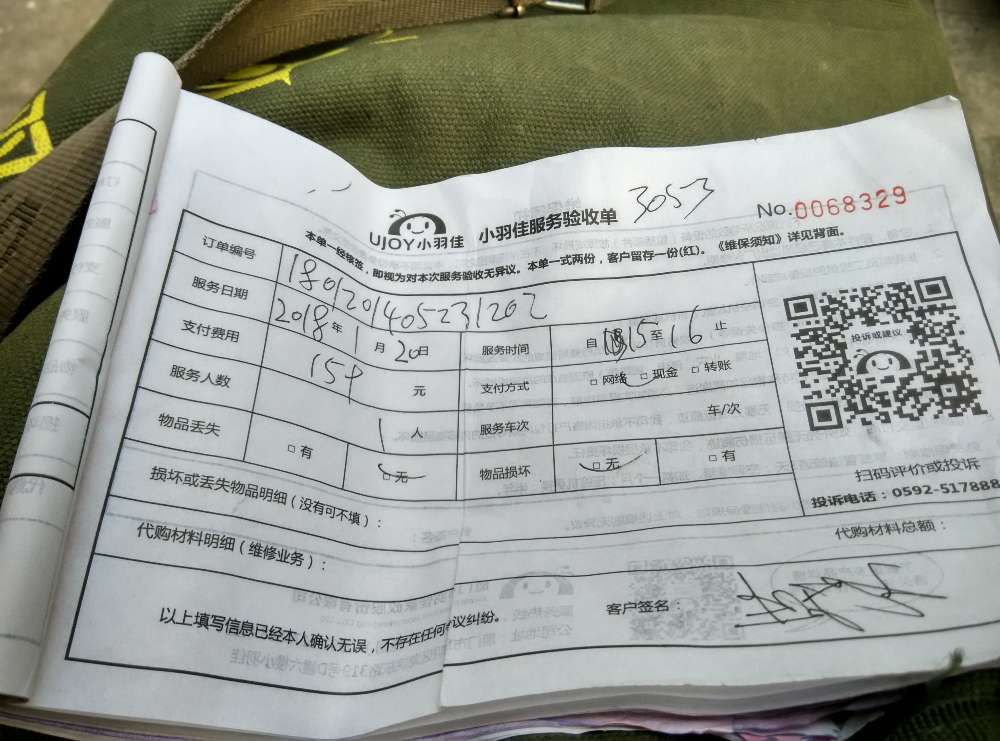 3053
UJOY小羽佳 小羽佳服务验收单 No.0068329
本单一经签签，即视为对本次服务验收无异议。本单一式两份，客户留存一份(红)。《维保须知》详见背面。
订单编号 1801201405231202
服务日期 2018年1月20日 服务时间 自15至16止
支付费用 159元 支付方式 □网络 □现金 □转账
服务人数 1人 服务车次 车/次
物品丢失 □有 □无 物品损坏 □无 □有
投诉或建议
扫码评价或投诉
投诉电话：0592-517888
损坏或丢失物品明细（没有可不填）：
代购材料明细（维修业务）： 代购材料总额：
以上填写信息已经本人确认无误，不存在任何争议纠纷。 客户签名：